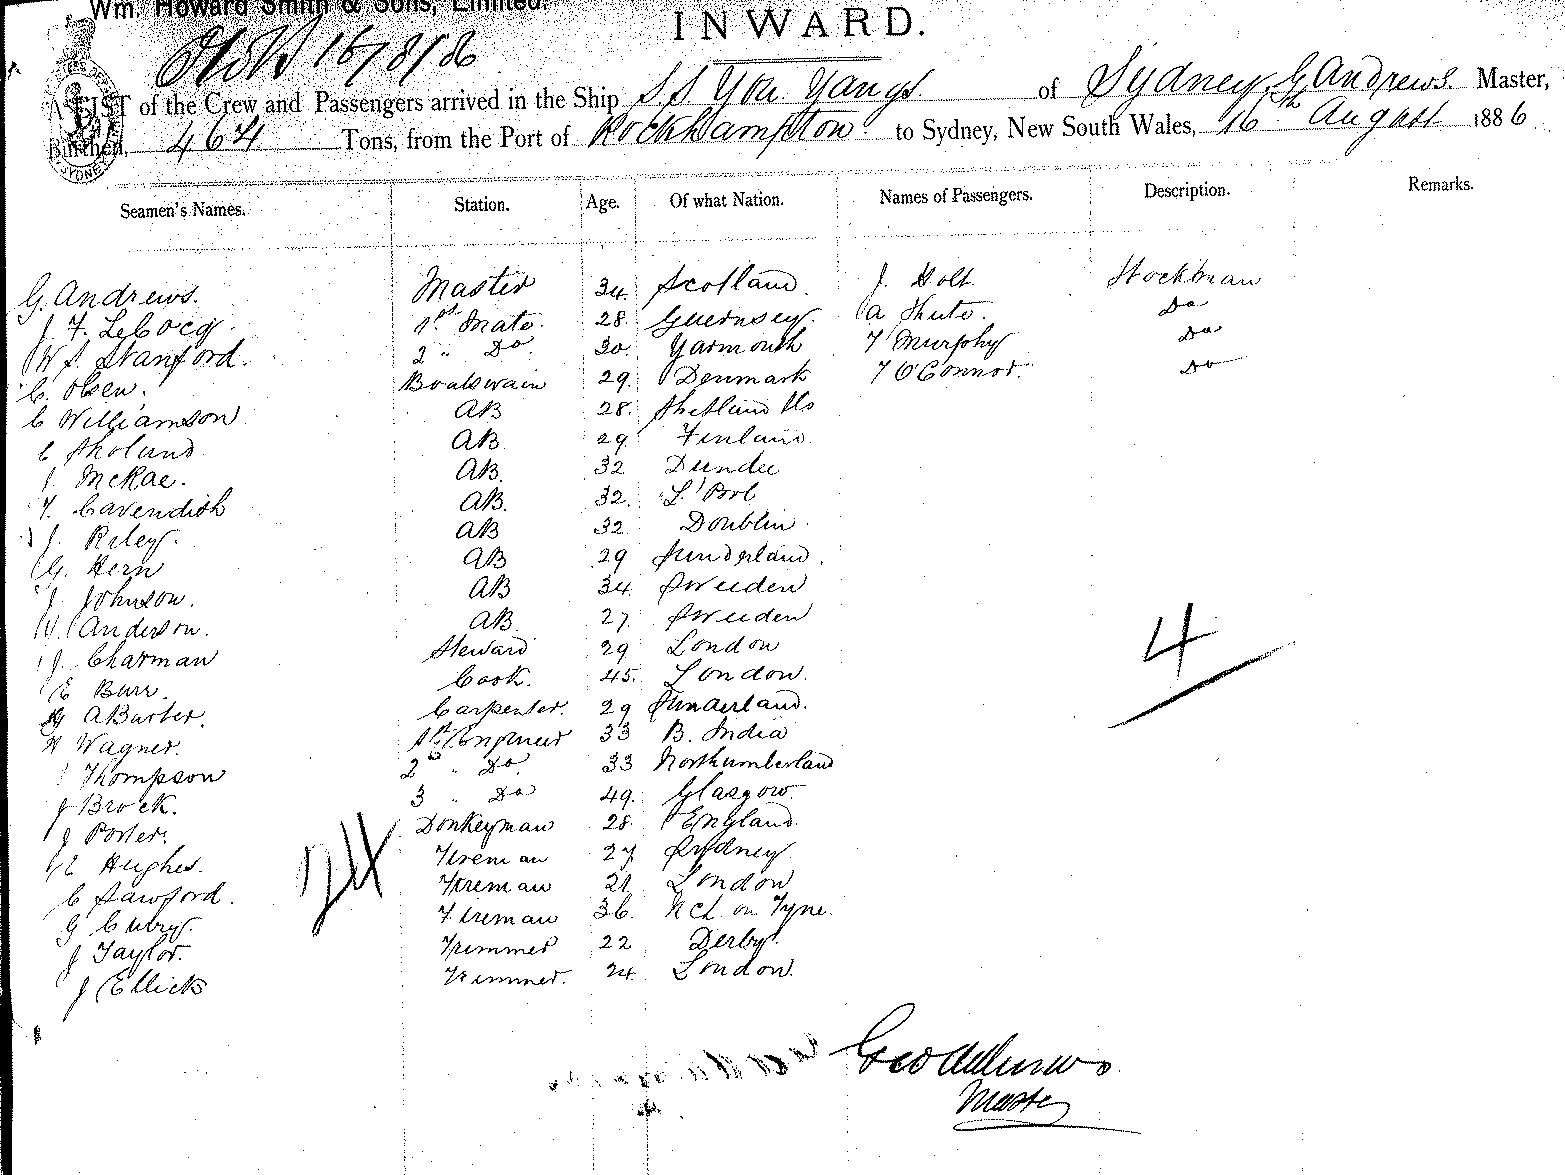 Wm. Howard Smith & Sons, Limited.
INWARD.
16/8/86
A LIST of the Crew and Passengers arrived in the Ship S.S. You Yangs of Sydney, G. Andrews. Master,
Burthen, 464 Tons, from the Port of Rockhampton to Sydney, New South Wales, 16th August 1886
Seamen's Names. Station. Age. Of what Nation. Names of Passengers. Description. Remarks.
G. Andrews. Master 34 Scotland. J. Holt Stockman
J. F. LeCocq. 1st Mate. 28 Guernsey. A Shute. Do
W S. Stanford. 2 " Do 30 Yarmouth T Murphy Do
C. Olsen. Boatswain 29 Denmark T O'Connor. Do
C Williamson AB 28 Shetland Ils
C Sholund. AB 29 Finland.
J. McRae. AB. 32 Dundee
F. Cavendish AB. 32 L'Pool
J. Riley. AB 32 Doublin
G. Hern AB 29 Sunderland.
J. Johnson. AB 34 Sweeden
Anderson. AB 27 Sweeden
J. Charman Steward 29 London
E Burr. Cook. 45 London.
A Barter. Carpenter. 29 Sunderland.
H Wagner. 1st Engineer 33 B. India
Thompson 2nd " Do 33 Northumberland
J Brock. 3 " Do 49 Glasgow
J Porter. Donkeyman 28 England
E Hughes. Fireman 27 Sydney
C Sawford. Fireman 21 London
G Cubry. Fireman 36 N'cl on Tyne.
J Taylor. Trimmer 22 Derby.
J Ellick Trimmer. 24 London
24
4
Geo Andrews
Master